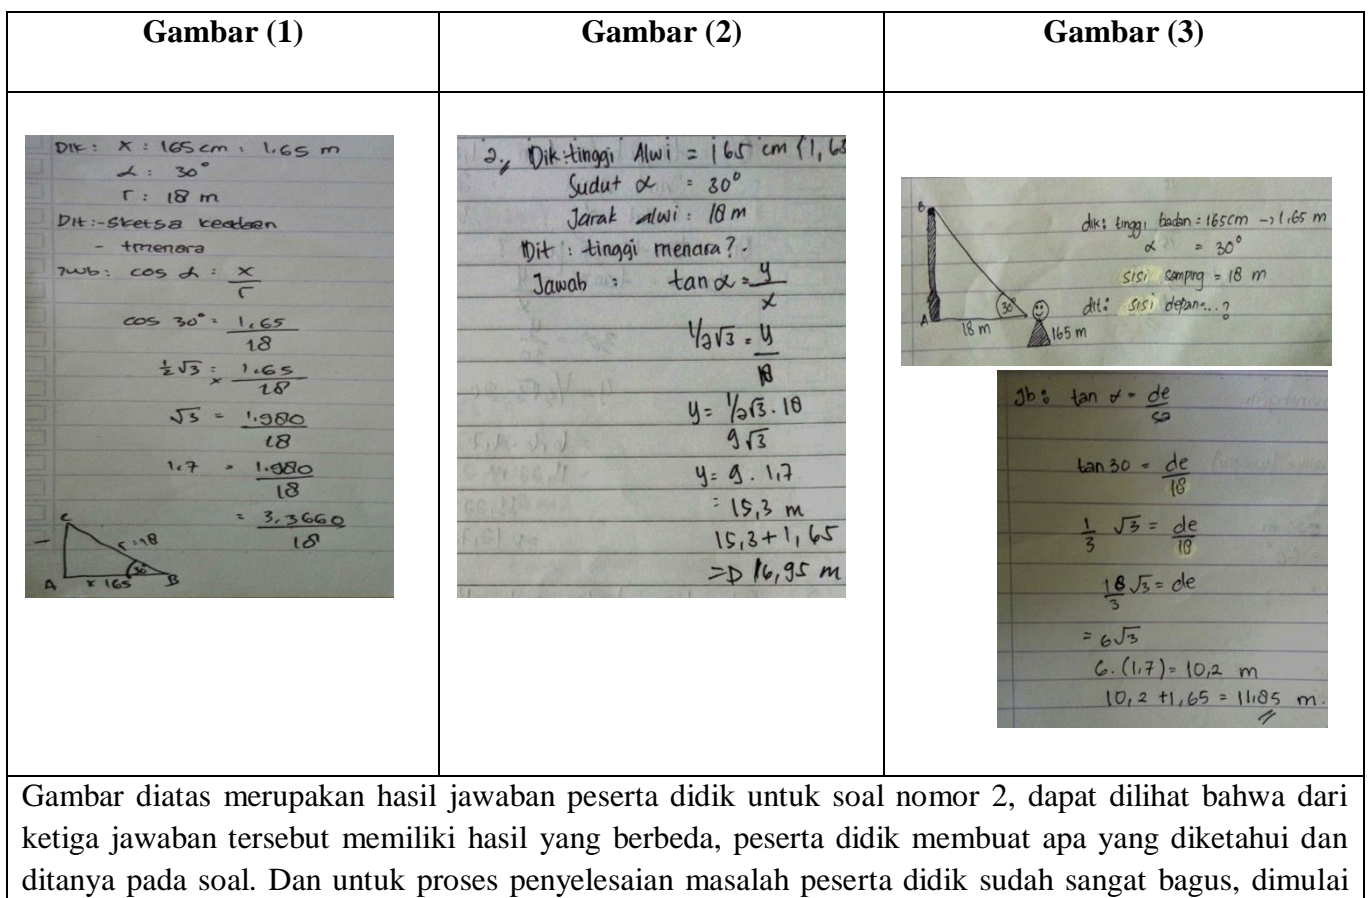 Gambar (1)
Gambar (2)
Gambar (3)
Dik : x : 165 cm : 1.65 m
α : 30°
r : 18 m
Dit :- Sketsa keadaan
- tmenara
Jwb : cos α : x/r
cos 30° = 1.65/18
½√3 = 1.65/18
√3 = 1.980/18
1.7 = 1.980/18
= 3.3660/18
C
r = 18
30
A x 165 B
2., Dik : tinggi Alwi = 165 cm (1,65
Sudut α = 30°
Jarak alwi : 18 m
Dit : tinggi menara ? .
Jawab : tan α = y/x
1/2√3 = y/18
y = 1/2√3 . 18
9√3
y = 9 . 1,7
= 15,3 m
15,3 + 1,65
=D 16,95 m
B
30°
A
18 m
165 m
dik : tinggi badan = 165cm -> 1,65 m
α = 30°
sisi samping = 18 m
dit : sisi depan...?
Jb : tan α = de/sa
tan 30 = de/18
1/3 √3 = de/18
18/3 √3 = de
= 6√3
6. (1,7) = 10,2 m
10,2 + 1,65 = 11,85 m.
Gambar diatas merupakan hasil jawaban peserta didik untuk soal nomor 2, dapat dilihat bahwa dari
ketiga jawaban tersebut memiliki hasil yang berbeda, peserta didik membuat apa yang diketahui dan
ditanya pada soal. Dan untuk proses penyelesaian masalah peserta didik sudah sangat bagus, dimulai